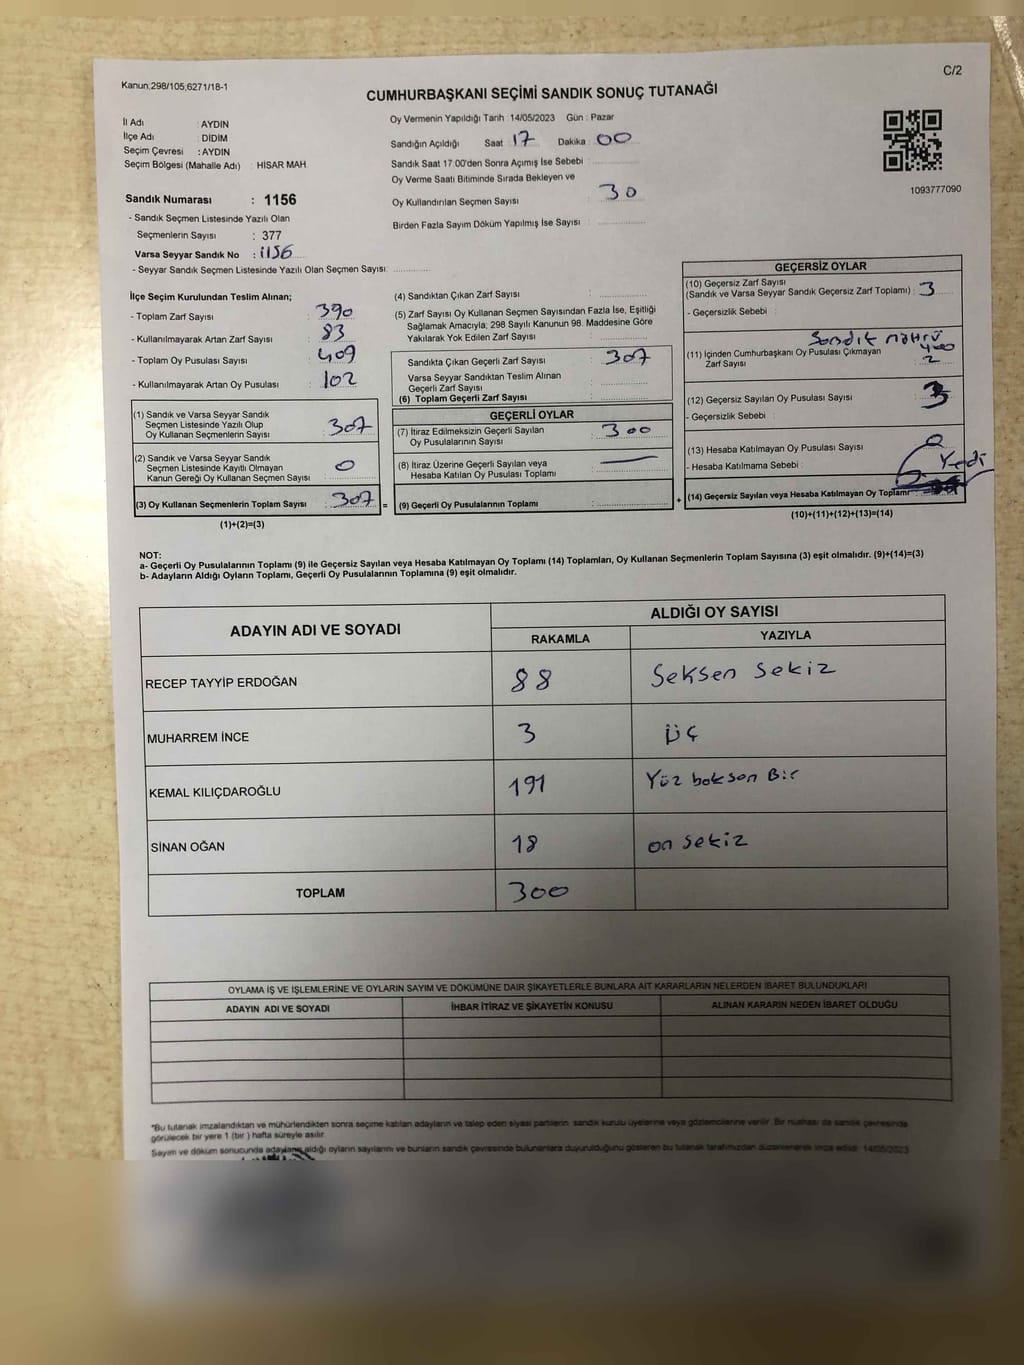 Kanun;298/105;6271/18-1
C/2
CUMHURBAŞKANI SEÇİMİ SANDIK SONUÇ TUTANAĞI
İl Adı : AYDIN
İlçe Adı : DİDİM
Seçim Çevresi : AYDIN
Seçim Bölgesi (Mahalle Adı) : HİSAR MAH.
Sandık Numarası : 1156
- Sandık Seçmen Listesinde Yazılı Olan
Seçmenlerin Sayısı : 377
Varsa Seyyar Sandık No : 1156
- Seyyar Sandık Seçmen Listesinde Yazılı Olan Seçmen Sayısı:
Oy Vermenin Yapıldığı Tarih :14/05/2023 Gün : Pazar
Sandığın Açıldığı Saat : 17 Dakika : 00
Sandık Saat 17.00'den Sonra Açımış İse Sebebi :
Oy Verme Saati Bitiminde Sırada Bekleyen ve
Oy Kullandırılan Seçmen Sayısı : 30
Birden Fazla Sayım Döküm Yapılmış İse Sayısı :
1093777090
İlçe Seçim Kurulundan Teslim Alınan;
- Toplam Zarf Sayısı : 390
- Kullanılmayarak Artan Zarf Sayısı : 83
- Toplam Oy Pusulası Sayısı : 409
- Kullanılmayarak Artan Oy Pusulası : 102
(1) Sandık ve Varsa Seyyar Sandık
Seçmen Listesinde Yazılı Olup
Oy Kullanan Seçmenlerin Sayısı : 307
(2) Sandık ve Varsa Seyyar Sandık
Seçmen Listesinde Kayıtlı Olmayan
Kanun Gereği Oy Kullanan Seçmen Sayısı : 0
(3) Oy Kullanan Seçmenlerin Toplam Sayısı : 307 =
(1)+(2)=(3)
(4) Sandıktan Çıkan Zarf Sayısı :
(5) Zarf Sayısı Oy Kullanan Seçmen Sayısından Fazla İse, Eşitliği
Sağlamak Amacıyla; 298 Sayılı Kanunun 98. Maddesine Göre
Yakılarak Yok Edilen Zarf Sayısı :
Sandıkta Çıkan Geçerli Zarf Sayısı : 307
Varsa Seyyar Sandıktan Teslim Alınan
Geçerli Zarf Sayısı :
(6) Toplam Geçerli Zarf Sayısı :
GEÇERLİ OYLAR
(7) İtiraz Edilmeksizin Geçerli Sayılan
Oy Pusulalarının Sayısı : 300
(8) İtiraz Üzerine Geçerli Sayılan veya
Hesaba Katılan Oy Pusulası Toplamı :
(9) Geçerli Oy Pusulalarının Toplamı : +
GEÇERSİZ OYLAR
(10) Geçersiz Zarf Sayısı
(Sandık ve Varsa Seyyar Sandık Geçersiz Zarf Toplamı) : 3
- Geçersizlik Sebebi :
Sandık
(11) İçinden Cumhurbaşkanı Oy Pusulası Çıkmayan
Zarf Sayısı : 2
(12) Geçersiz Sayılan Oy Pusulası Sayısı :
- Geçersizlik Sebebi :
(13) Hesaba Katılmayan Oy Pusulası Sayısı :
- Hesaba Katılmama Sebebi : Yedi
(14) Geçersiz Sayılan veya Hesaba Katılmayan Oy Toplamı
(10)+(11)+(12)+(13)=(14)
NOT:
a- Geçerli Oy Pusulalarının Toplamı (9) ile Geçersiz Sayılan veya Hesaba Katılmayan Oy Toplamı (14) Toplamları, Oy Kullanan Seçmenlerin Toplam Sayısına (3) eşit olmalıdır. (9)+(14)=(3)
b- Adayların Aldığı Oyların Toplamı, Geçerli Oy Pusulalarının Toplamına (9) eşit olmalıdır.
ADAYIN ADI VE SOYADI
ALDIĞI OY SAYISI
RAKAMLA YAZIYLA
RECEP TAYYİP ERDOĞAN 88 Seksen Sekiz
MUHARREM İNCE 3 Üç
KEMAL KILIÇDAROĞLU 191 Yüz Doksan Bir
SİNAN OĞAN 18 on Sekiz
TOPLAM 300
OYLAMA İŞ VE İŞLEMLERİNE VE OYLARIN SAYIM VE DÖKÜMÜNE DAİR ŞİKAYETLERLE BUNLARA AİT KARARLARIN NELERDEN İBARET BULUNDUKLARI
ADAYIN ADI VE SOYADI İHBAR İTİRAZ VE ŞİKAYETİN KONUSU ALINAN KARARIN NEDEN İBARET OLDUĞU
*Bu tutanak imzalandıktan ve mühürlendikten sonra seçime katılan adayların ve talep eden siyasi partilerin sandık kurulu üyelerine veya gözlemcilerine verilir. Bir nüshası da sandık çevresinde
görülecek bir yere 1 (bir ) hafta süreyle asılır.
Sayım ve döküm sonucunda adayların aldığı oyların sayılarını ve bunların sandık çevresinde bulunanlara duyurulduğunu gösteren bu tutanak tarafımızdan düzenlenerek imza edildi. 14/05/2023